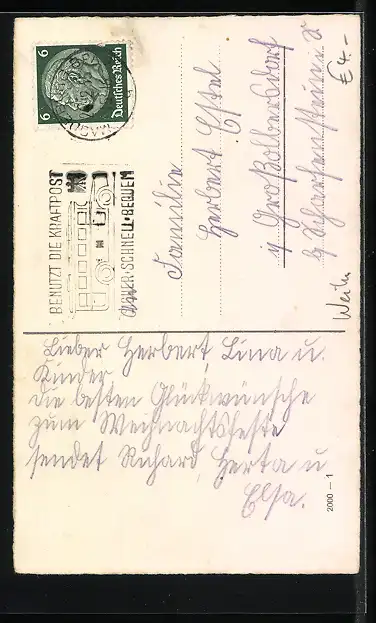 6 Deutsches Reich 6
BENUTZT DIE KRAFTPOST
SICHER·SCHNELL·BEQUEM
Familie
Herbert Estel
i/ Großolbersdorf
b/ Scharfenstein i. S
€ 4.-
Weihn
Lieber Herbert, Lina u.
Kinder
die besten Glückwünsche
zum Weihnachtsfeste
sendet Richard, Herta u
Elsa.
2000 — 1